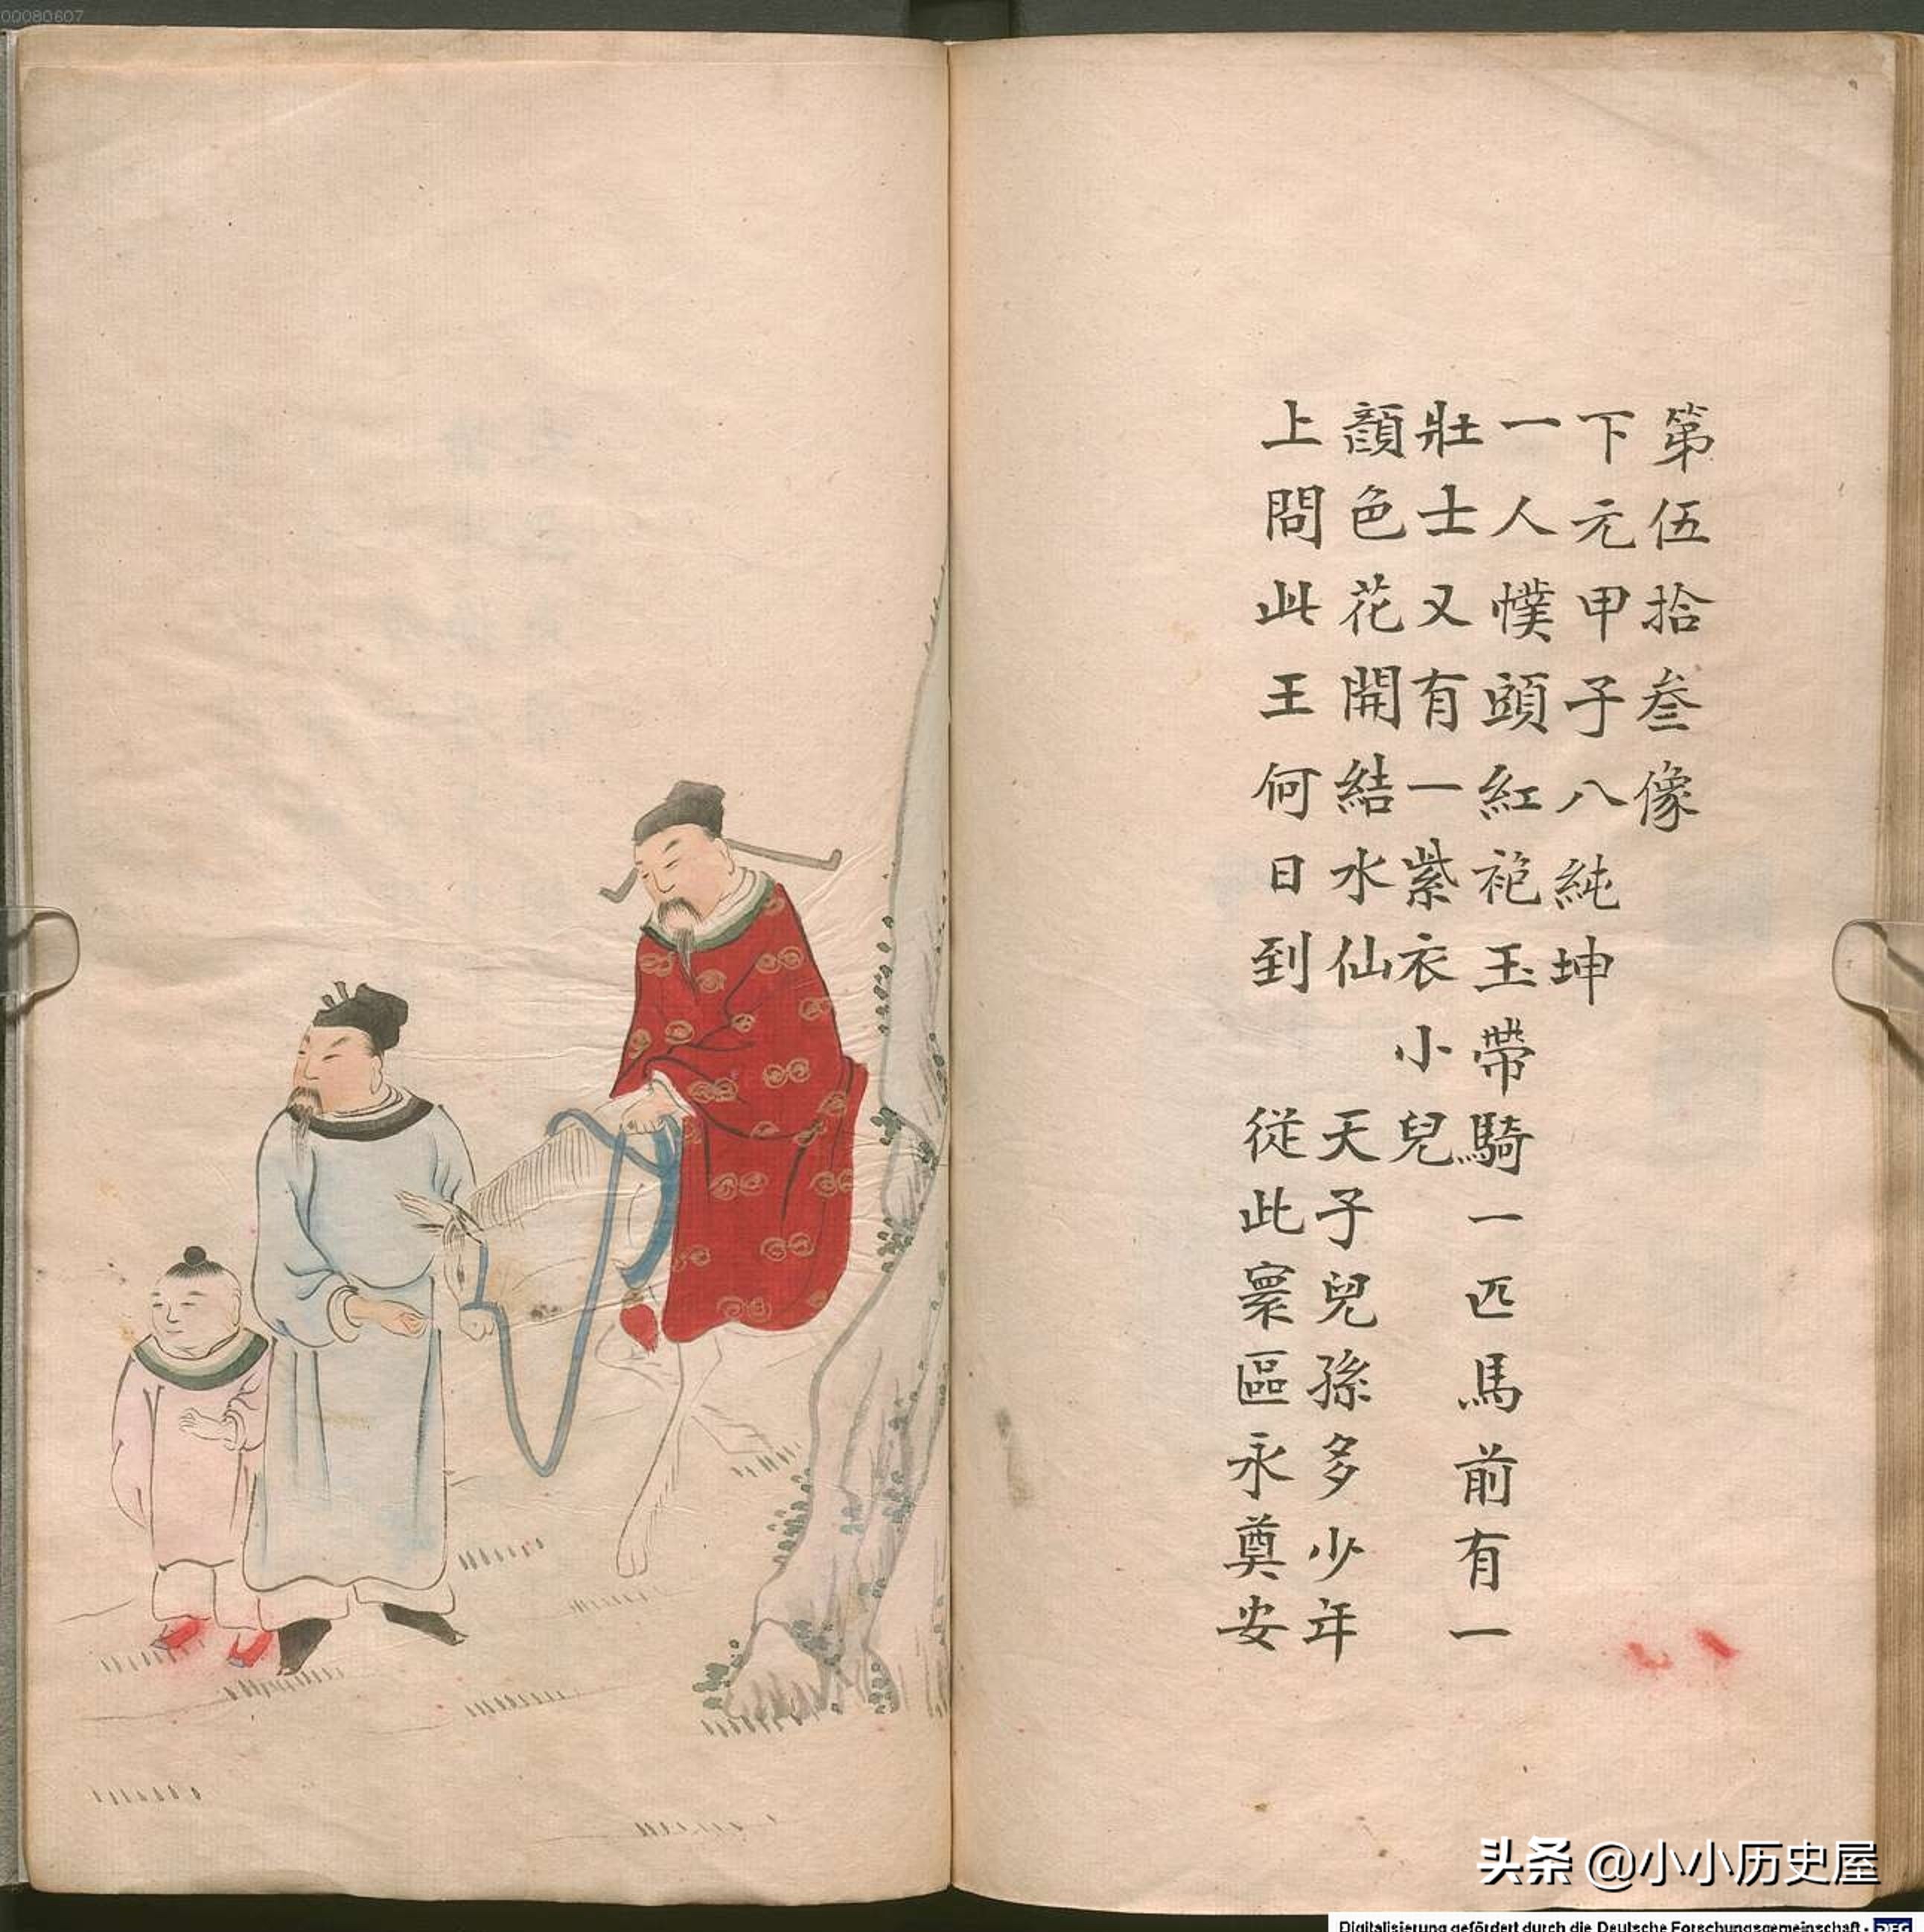 00080607
第伍拾叁像
下元甲子八 純坤
一人幞頭紅袍玉帶騎一匹馬前有一
壯士又有一紫衣小兒
顏色花開結水仙 天子兒孫多少年
上問此王何日到 從此寰區永奠安
头条 @小小历史屋
Digitalisierung gefördert durch die Deutsche Forschungsgemeinschaft - DFG